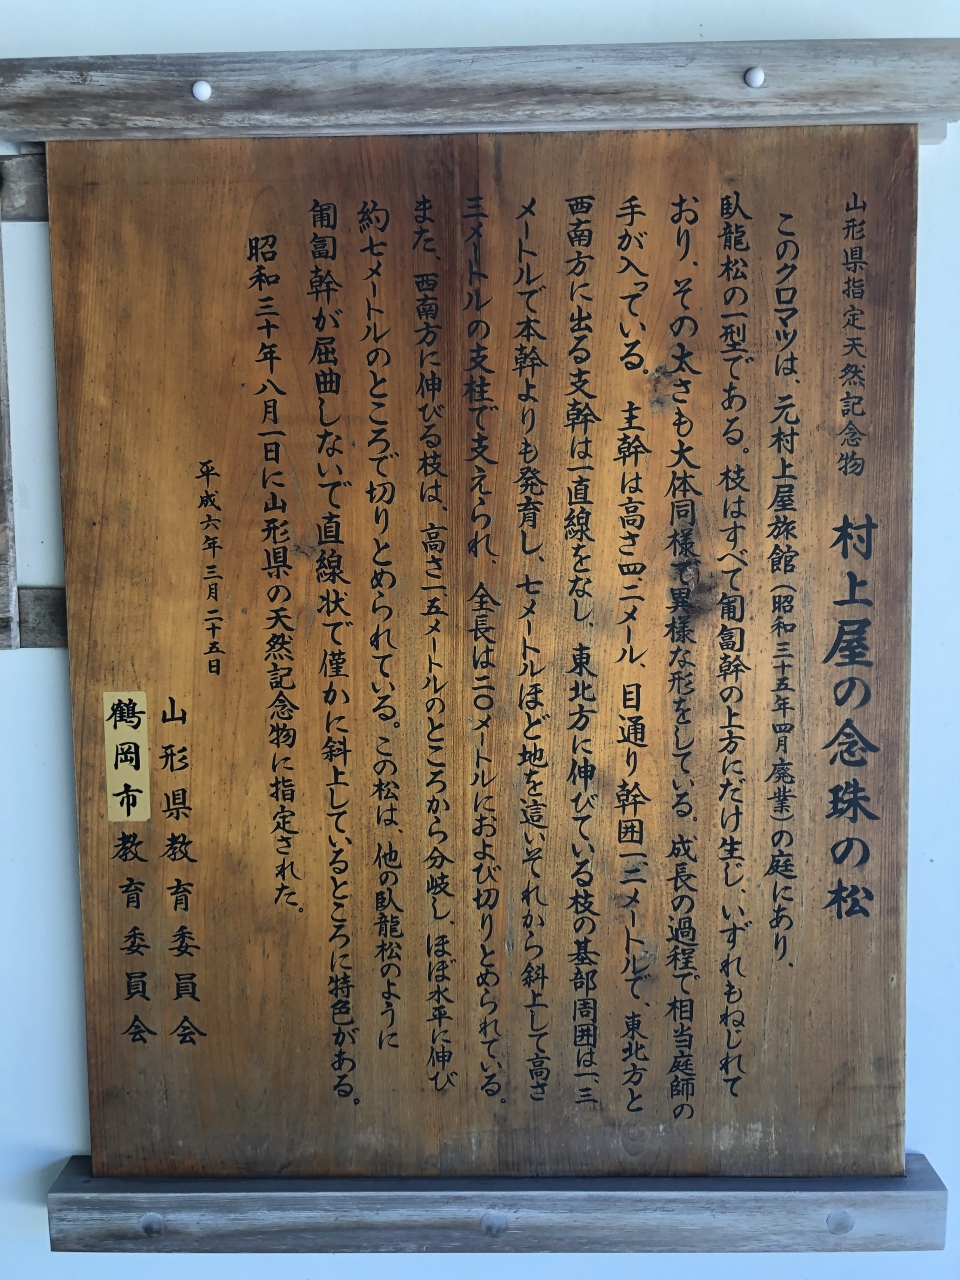 山形県指定天然記念物 村上屋の念珠の松
このクロマツは、元村上屋旅館(昭和三十五年四月廃業)の庭にあり、
臥龍松の一型である。枝はすべて匍匐幹の上方にだけ生じ、いずれもねじれて
おり、その太さも大体同様で異様な形をしている。成長の過程で相当庭師の
手が入っている。主幹は高さ四・二メール、目通り幹囲一・二メートルで、東北方と
西南方に出る支幹は一直線をなし、東北方に伸びている枝の基部周囲は一・三
メートルで本幹よりも発育し、七メートルほど地を這いそれから斜上して高さ
三メートルの支柱で支えられ、全長は二〇メートルにおよび切りとめられている。
また、西南方に伸びる枝は、高さ一・五メートルのところから分岐し、ほぼ水平に伸び
約七メートルのところで切りとめられている。この松は、他の臥龍松のように
匍匐幹が屈曲しないで直線状で僅かに斜上しているところに特色がある。
昭和三十年八月一日に山形県の天然記念物に指定された。
平成六年三月二十五日
山形県教育委員会
鶴岡市教育委員会